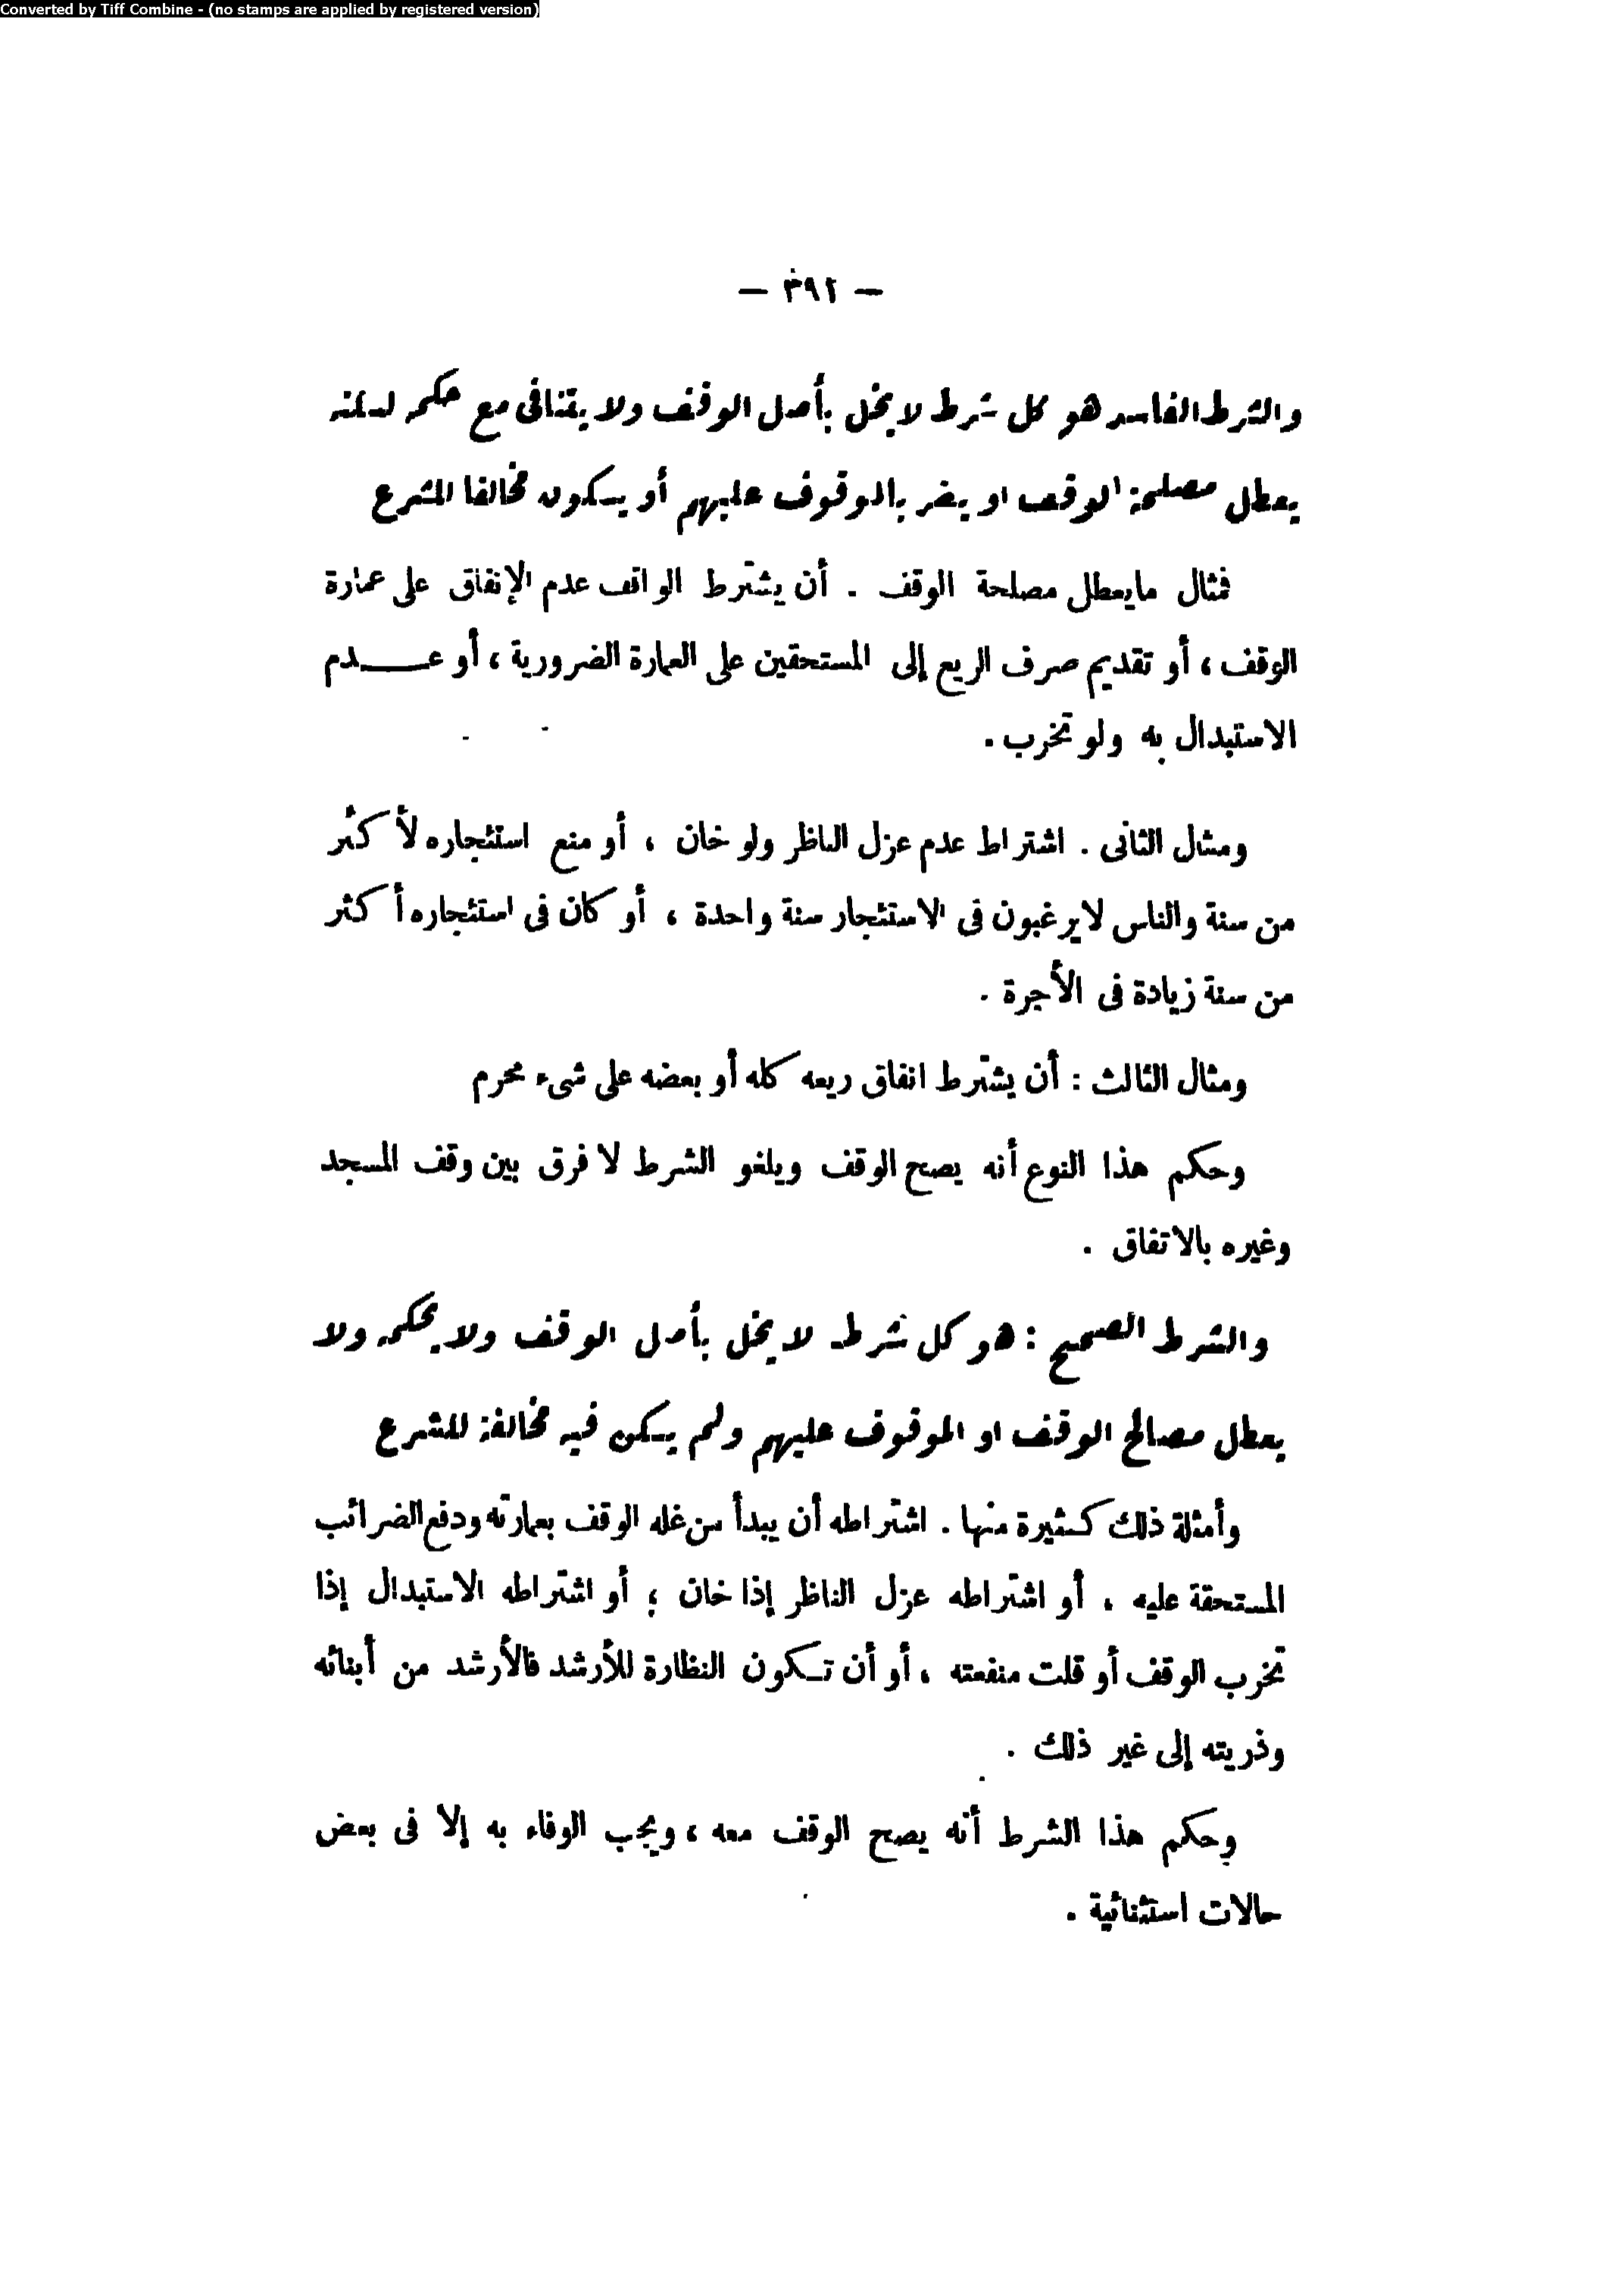 Converted by Tiff Combine - (no stamps are applied by registered version)
— ٣٩٢ —
والشرط الفاسد هو كل شرط لا يخل بأصل الوقف ولا يتنافى مع حكمه لكنه
يعطل مصلحة الوقف او يضر بالموقوف عليهم أو يكون مخالفا للشرع
فمثال مايعطل مصلحة الوقف . أن يشترط الواقف عدم الإنفاق على عمارة
الوقف ، أو تقديم صرف الريع إلى المستحقين على العمارة الضرورية ، أو عــدم
الاستبدال به ولو تخرب .
ومثال الثانى . اشتراط عدم عزل الناظر ولو خان ، أو منع استئجاره لأكثر
من سنة والناس لايرغبون فى الاستئجار سنة واحدة ، أو كان فى استئجاره أكثر
من سنة زيادة فى الأجرة .
ومثال الثالث : أن يشترط انفاق ريعه كله أو بعضه على شىء محرم
وحكم هذا النوع أنه يصح الوقف ويلغو الشرط لا فرق بين وقف المسجد
وغيره بالاتفاق .
والشرط الصحيح : هو كل شرط لا يخل بأصل الوقف ولا بحكمه ولا
يعطل مصالح الوقف او الموقوف عليهم ولم يكن فيه مخالفة للشرع
وأمثلة ذلك كثيرة منها . اشتراطه أن يبدأ من غله الوقف بعمارته ودفع الضرائب
المستحقة عليه ، أو اشتراطه عزل الناظر إذا خان ، أو اشتراطه الاستبدال إذا
تخرب الوقف أو قلت منفعته ، أو أن تكون النظارة للأرشد فالأرشد من أبنائه
وذريته إلى غير ذلك .
وحكم هذا الشرط أنه يصح الوقف معه ، ويجب الوفاء به إلا فى بعض
حالات استثنائية .